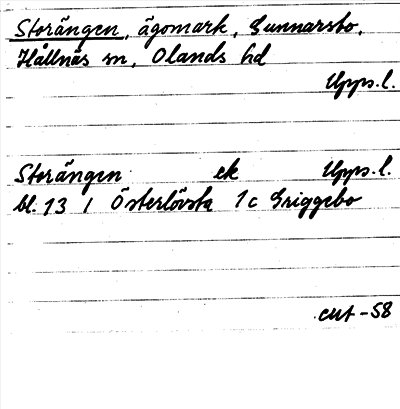 Storängen, ägomark, Gunnarsbo,
Hållnäs sn, Olands hd
Upps.l.
Storängen ek Upps.l.
bl. 13 I Österlövsta 1c Griggebo
-58